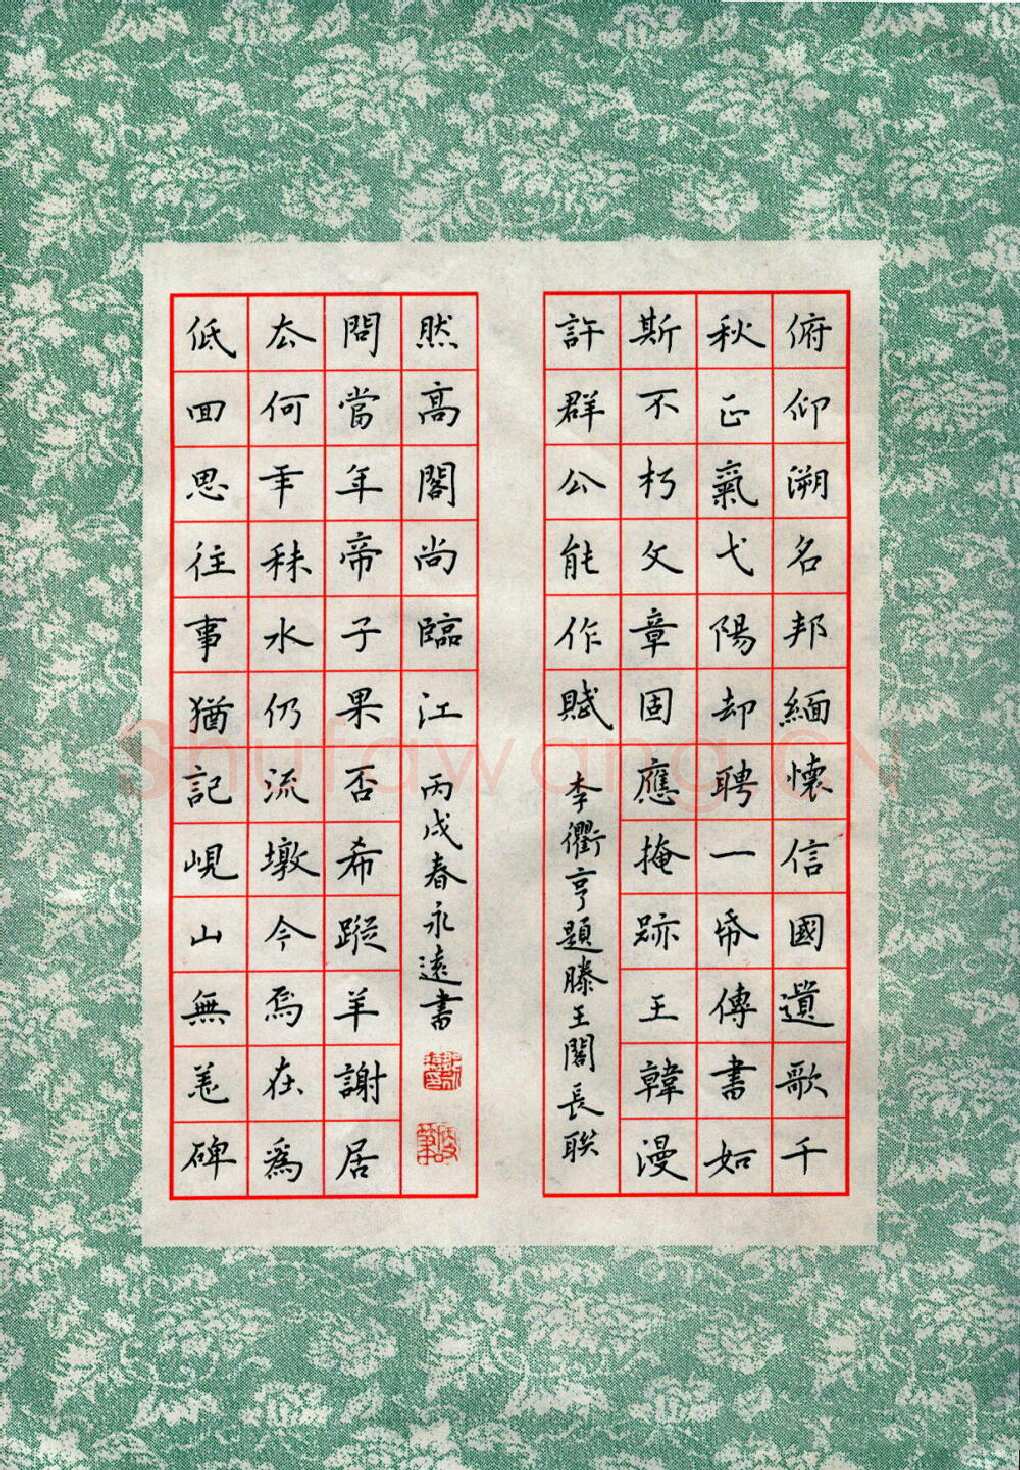 俯仰溯名邦緬懷信國遺歌千
秋正氣弋陽却聘一帋傳書如
斯不朽文章固應掩跡王韓漫
許群公能作賦
李衢亨題滕王閣長聯
低囬思往事猶記峴山無恙碑
厺何年秣水仍流墩今焉在為
問當年帝子果否希蹤羊謝居
然高閣尚臨江
丙戌春永遠書
Shufawang.CN